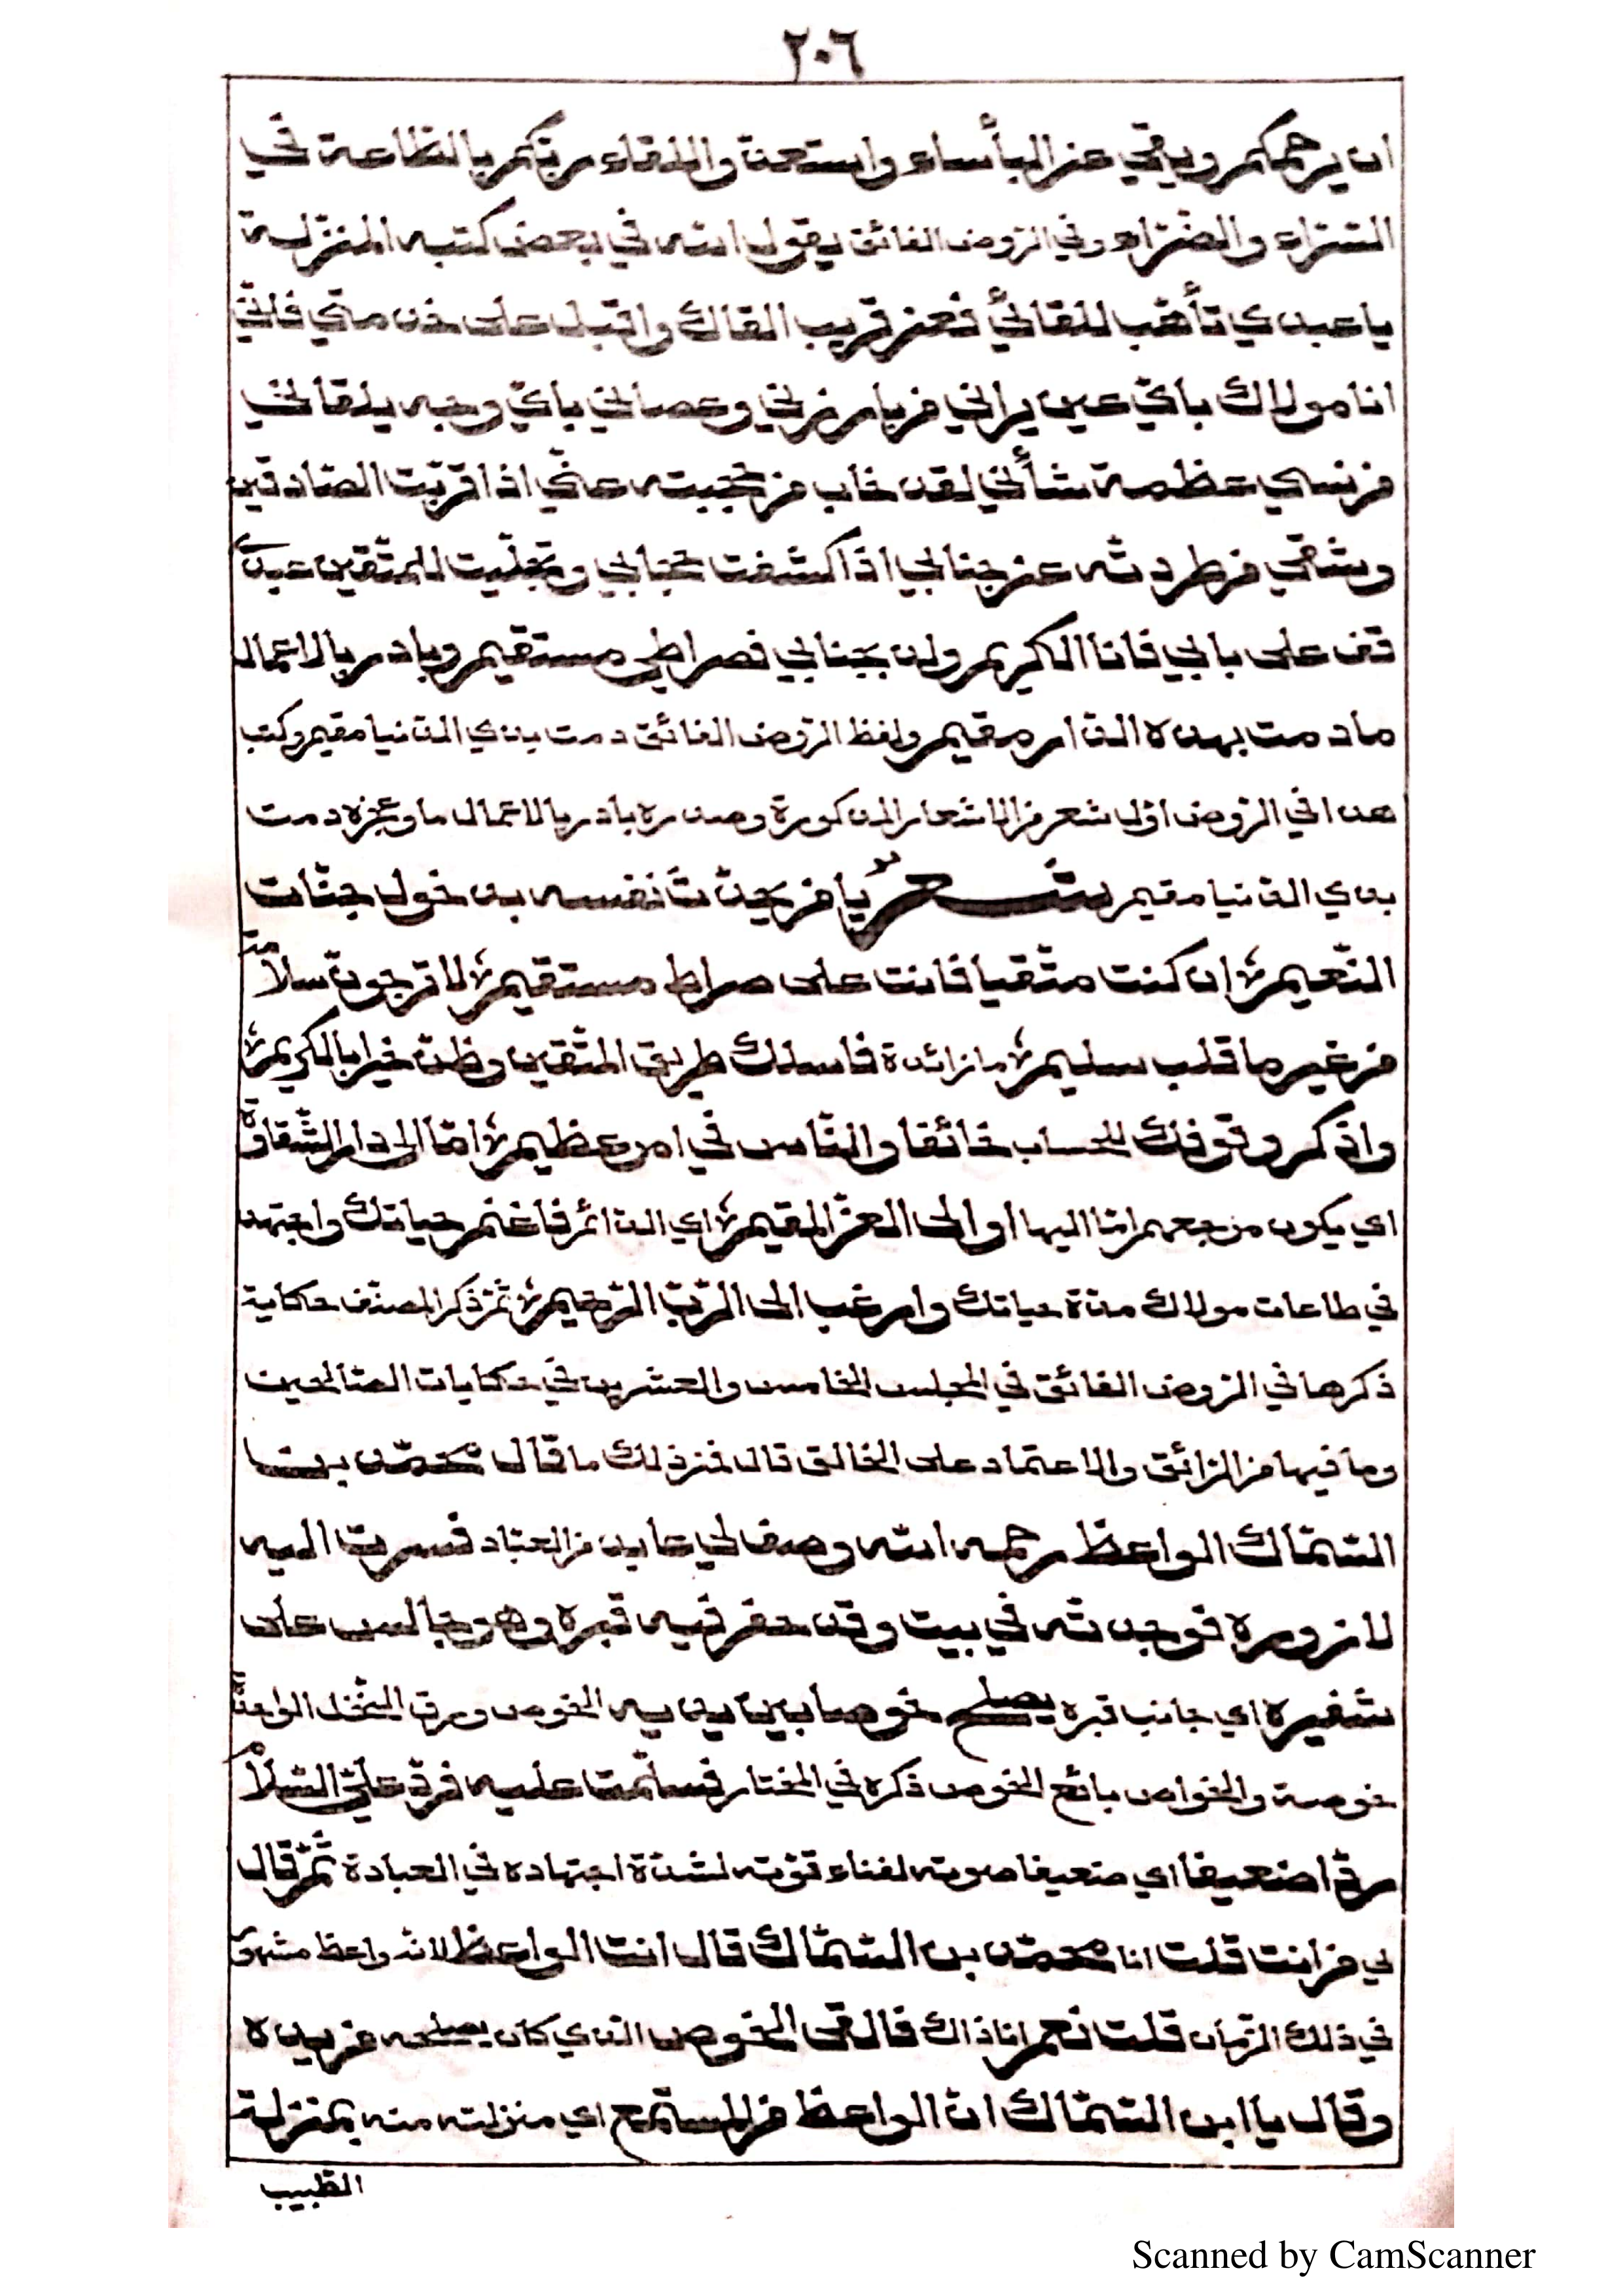 ٢٠٦
ان يرحمكم ويقي عن البأساء واستعدّ واللقاء ربّكم بالطّاعة في
السّرّاء والضّرّاء وفي الرّوض الفائق يقول الله في بعض كتبه المنزلة
يا عبدي تأهّب للقائي فعن قريب القاك واقبل على خدمتي فانّي
انا مولاك بايّ عين يراني من بارزني وعصاني بايّ وجه يلقاني
من نسي عظمة شأني لقد خاب من حجبته عنّي اذا قرّبت الصّادقين
وشقي من طردته عن جنابي اذا كشفت حجابي وتجلّيت للمتّقين عبدي
قف على بابي فانا الكريم ولذ بجنابي فصراطي مستقيم وبادر بالاعمال
ما دمت بهذه الدّار مقيم ولفظ الرّوض الفائق دمت بذي الدّنيا مقيم وكتب
هذا في الرّوض اوّل شعر من الاشعار المذكورة وصدره بادر بالاعمال ما وعجزه دمت
بذي الدّنيا مقيم شعرٌ يا من يحدّث نفسه بدخول جنّات
النّعيم ان كنت متّقيا فانت على صراط مستقيم لا ترجونّ سلامة
من غير ما قلب سليم ما زائدة فاسلك طريق المتّقين وظنّ خيرا بالكريم
واذكر وقوفك للحساب خائفا والنّاس في امر عظيم امّا الى دار الشّقاوة
اي يكون مرجعهم امّا اليها او الى العزّ المقيم اي الدّائم فاغنم حياتك واجتهد
في طاعات مولاك مدّة حياتك وارغب الى الرّبّ الرّحيم ثمّ ذكر المصنّف حكاية
ذكرها في الرّوض الفائق في المجلس الخامس والعشرين في حكايات الصّالحين
وما فيها من الرّائق والاعتماد على الخالق قال فمن ذلك ما قال محمّد بن
السّمّاك الواعظ رحمه الله وصف لي عابد من العبّاد فسرت اليه
لازوره فوجدته في بيت وقد حفر فيه قبره وهو جالس على
شفيره اي جانب قبره يصلح خوصا بين يديه الخوص ورق النّخل الواحدة
خوصة والخواص بائع الخوص ذكره في المختار فسلّمت عليه فردّ عليّ السّلام
ردّا ضعيفا اي ضعيفا صوته لفناء قوّته لشدّة اجتهاده في العبادة ثمّ قال
لي من انت قلت انا محمّد بن السّمّاك قال انت الواعظ لانّه واعظ مشهور
في ذلك الزّمان قلت نعم انا ذاك فالقى الخوص الذي كان يصلحه من يده
وقال يا ابن السّمّاك انّ الواعظ من المستمع اي منزلته منه بمنزلة
الطّبيب
Scanned by CamScanner